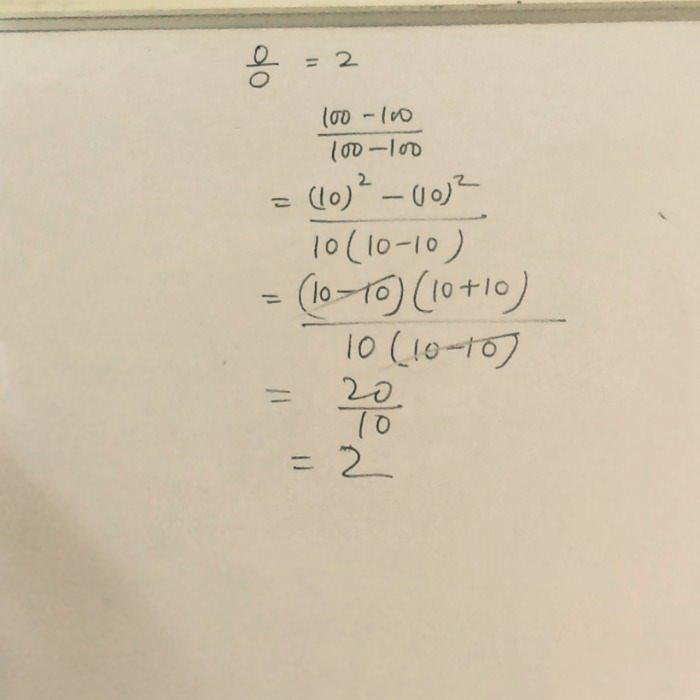 0/0 = 2
100 - 100 / 100 - 100
= (10)² - (10)² / 10(10-10)
= (10-10)(10+10) / 10(10-10)
= 20/10
= 2